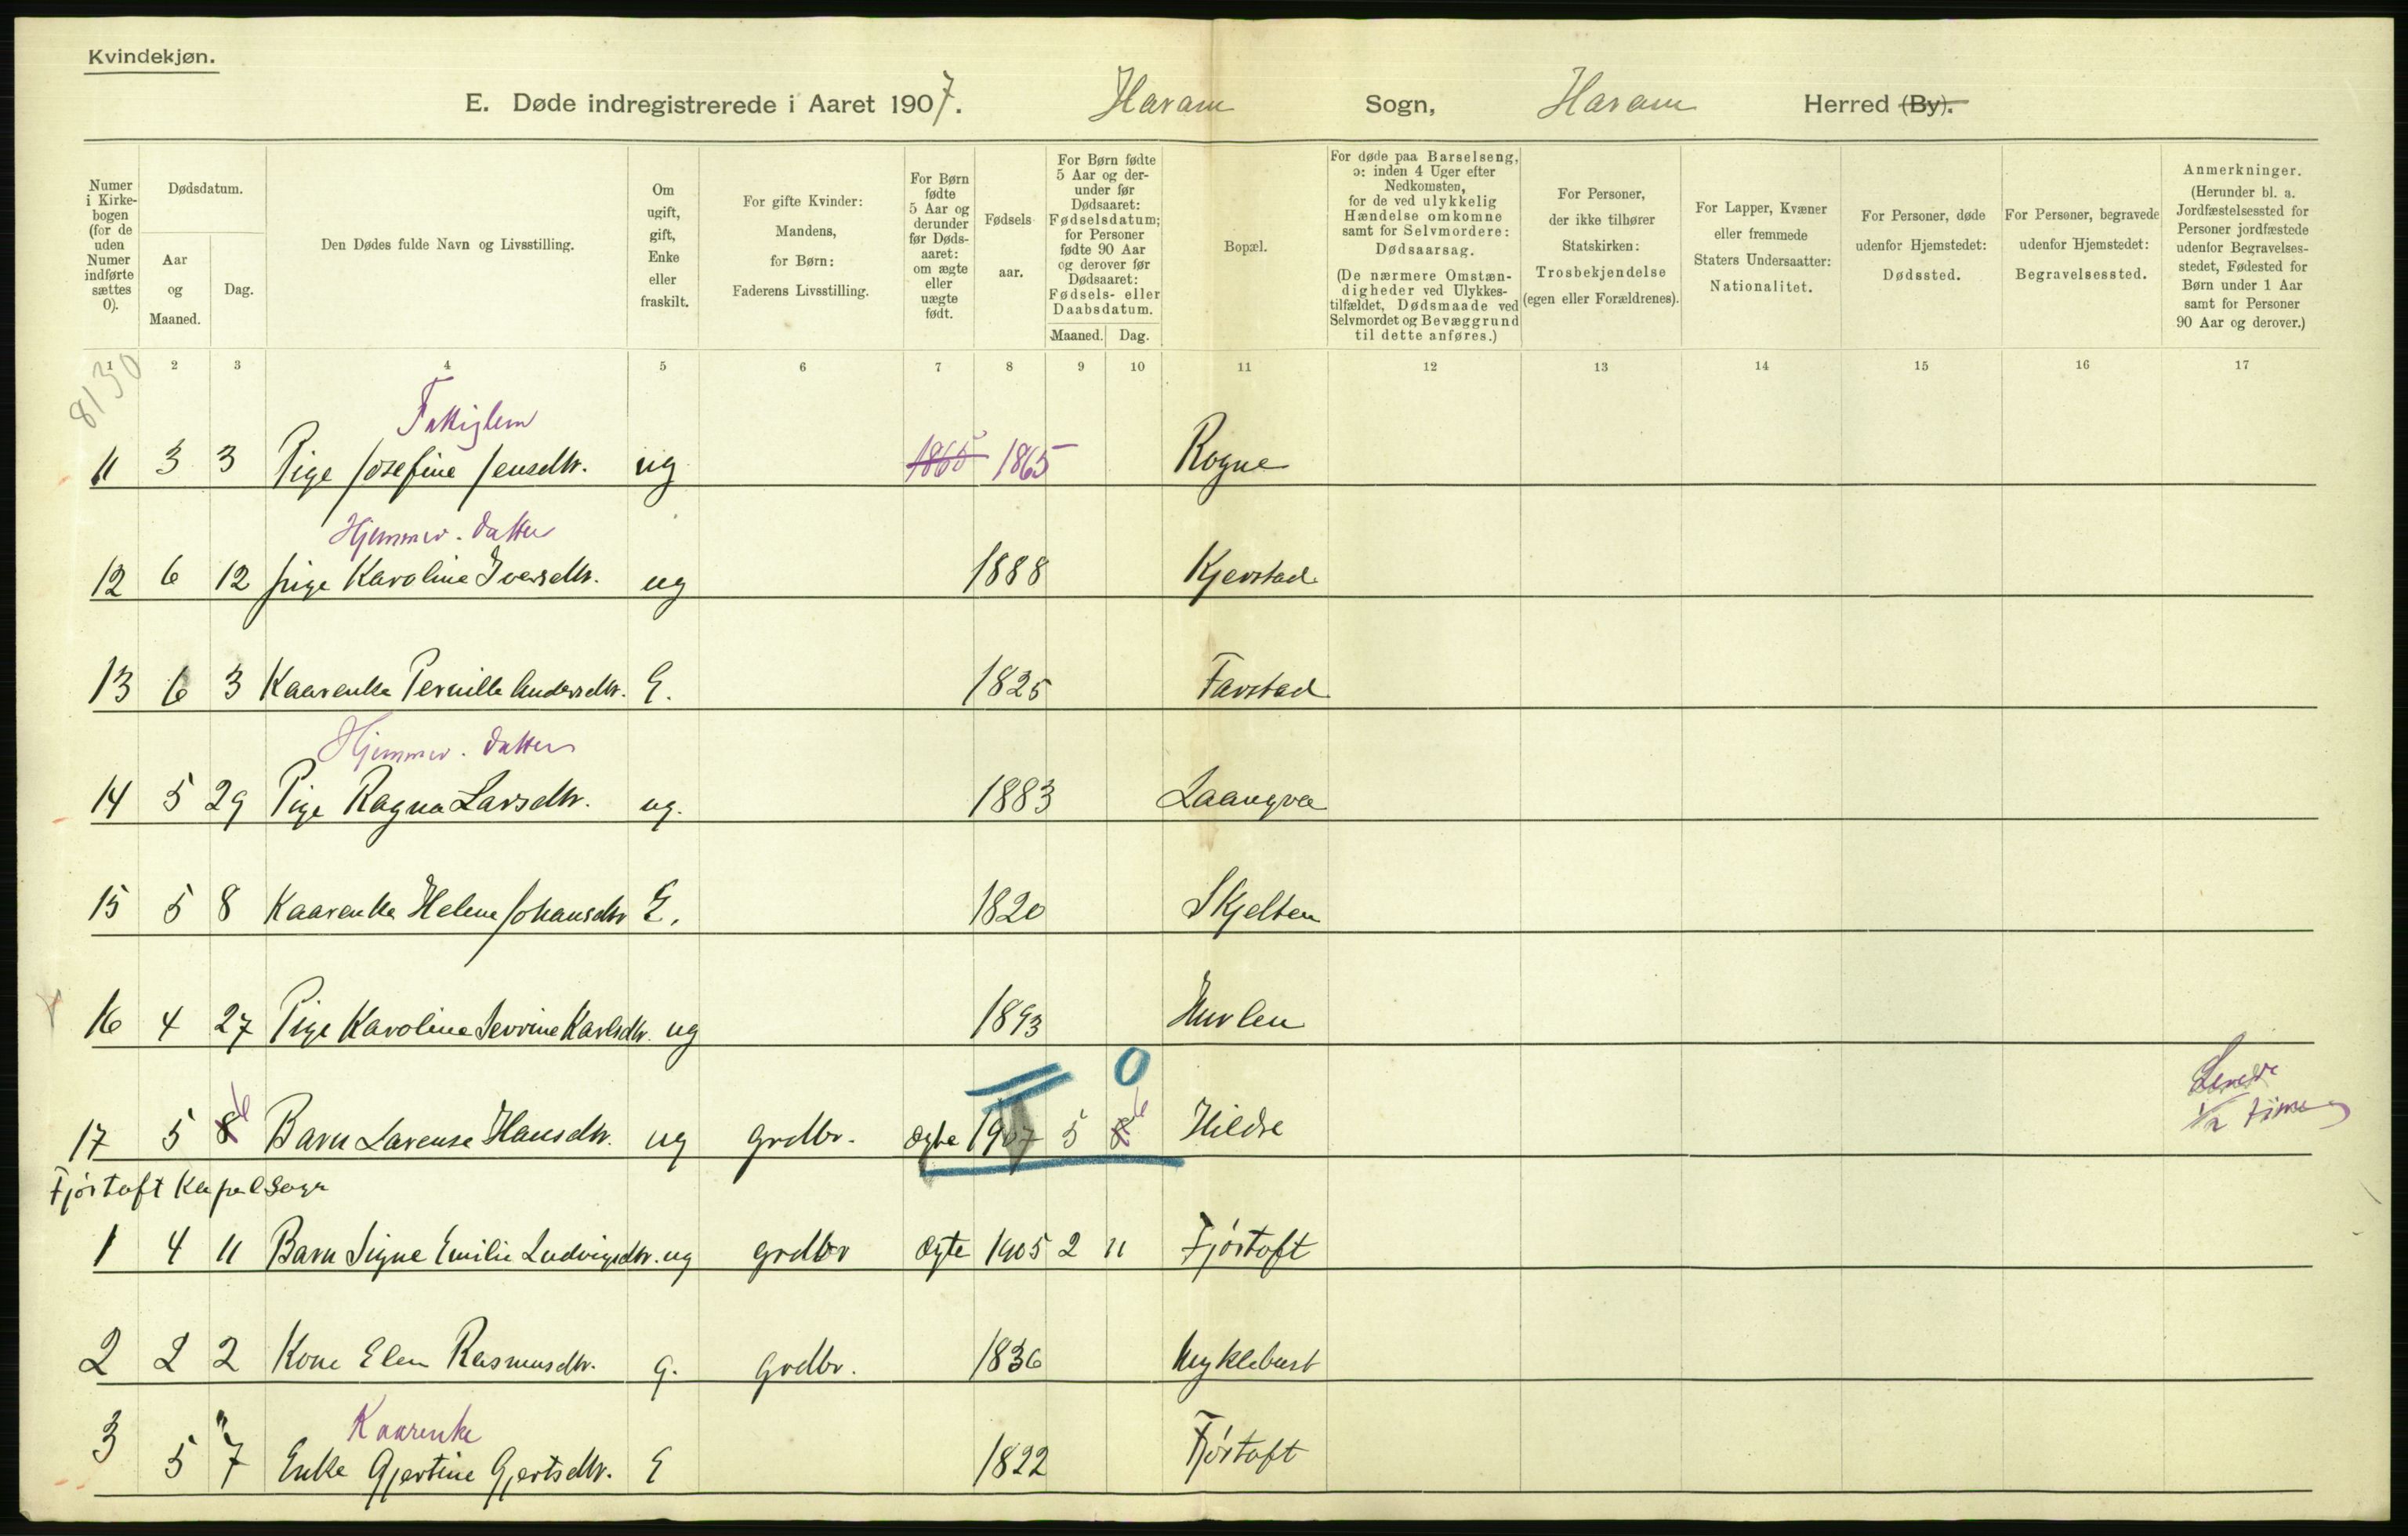 Kvindekjøn.
E. Døde indregistrerede i Aaret 1907. Haram Sogn, Haram Herred (By).
Numer i Kirkebogen (for de uden Numer indførte sættes 0).
Dødsdatum.
Aar og Maaned.
Dag.
Den Dødes fulde Navn og Livsstilling.
Om ugift, gift, Enke eller fraskilt.
For gifte Kvinder: Mandens, for Børn: Faderens Livsstilling.
For Børn fødte 5 Aar og derunder før Dødsaaret: om ægte eller uægte født.
Fødselsaar.
For Børn fødte 5 Aar og derunder før Dødsaaret: Fødselsdatum; for Personer fødte 90 Aar og derover før Dødsaaret: Fødsels- eller Daabsdatum.
Maaned. Dag.
Bopæl.
For døde paa Barselseng, ɔ: inden 4 Uger efter Nedkomsten, for de ved ulykkelig Hændelse omkomne samt for Selvmordere: Dødsaarsag.
(De nærmere Omstændigheder ved Ulykkestilfældet, Dødsmaade ved Selvmordet og Bevæggrund til dette anføres.)
For Personer, der ikke tilhører Statskirken: Trosbekjendelse (egen eller Forældrenes).
For Lapper, Kvæner eller fremmede Staters Undersaatter: Nationalitet.
For Personer, døde udenfor Hjemstedet: Dødssted.
For Personer, begravede udenfor Hjemstedet: Begravelsessted.
Anmerkninger.
(Herunder bl. a. Jordfæstelsessted for Personer jordfæstede udenfor Begravelsesstedet, Fødested for Børn under 1 Aar samt for Personer 90 Aar og derover.)
1 2 3 4 5 6 7 8 9 10 11 12 13 14 15 16 17
8130
11 3 3 Pige Josefine Jensdtr. ug 1865 1865 Rogne
Hjemmev. datter
12 6 12 pige Karoline Iversdtr. ug 1888 Kjerstad
13 6 3 Kaarenke Pernille Andersdtr. E. 1825 Farstad
Hjemmev. datter
14 5 29 Pige Ragna Larsdtr. ug. 1883 Laangva
15 5 8 Kaarenke Helene Johansdtr E. 1820 Skjelten
16 4 27 Pige Karoline Severine Karlsdtr. ug 1893 Hurlen
0
17 5 8 6 Barn Larense Hansdtr. ug grdbr. ægte 1907 5 8 6 Hildre Levede ½ time
Fjørtoft Kapelsogn
1 4 11 Barn Signe Emilie Ludvigsdtr. ug grdbr ægte 1905 2 11 Fjørtoft
2 2 2 Kone Elen Rasmusdtr. g. grdbr. 1836 Myklebust
Kaarenke
3 5 7 Enke Gjertine Gjertsdtr. E 1822 Fjørtoft